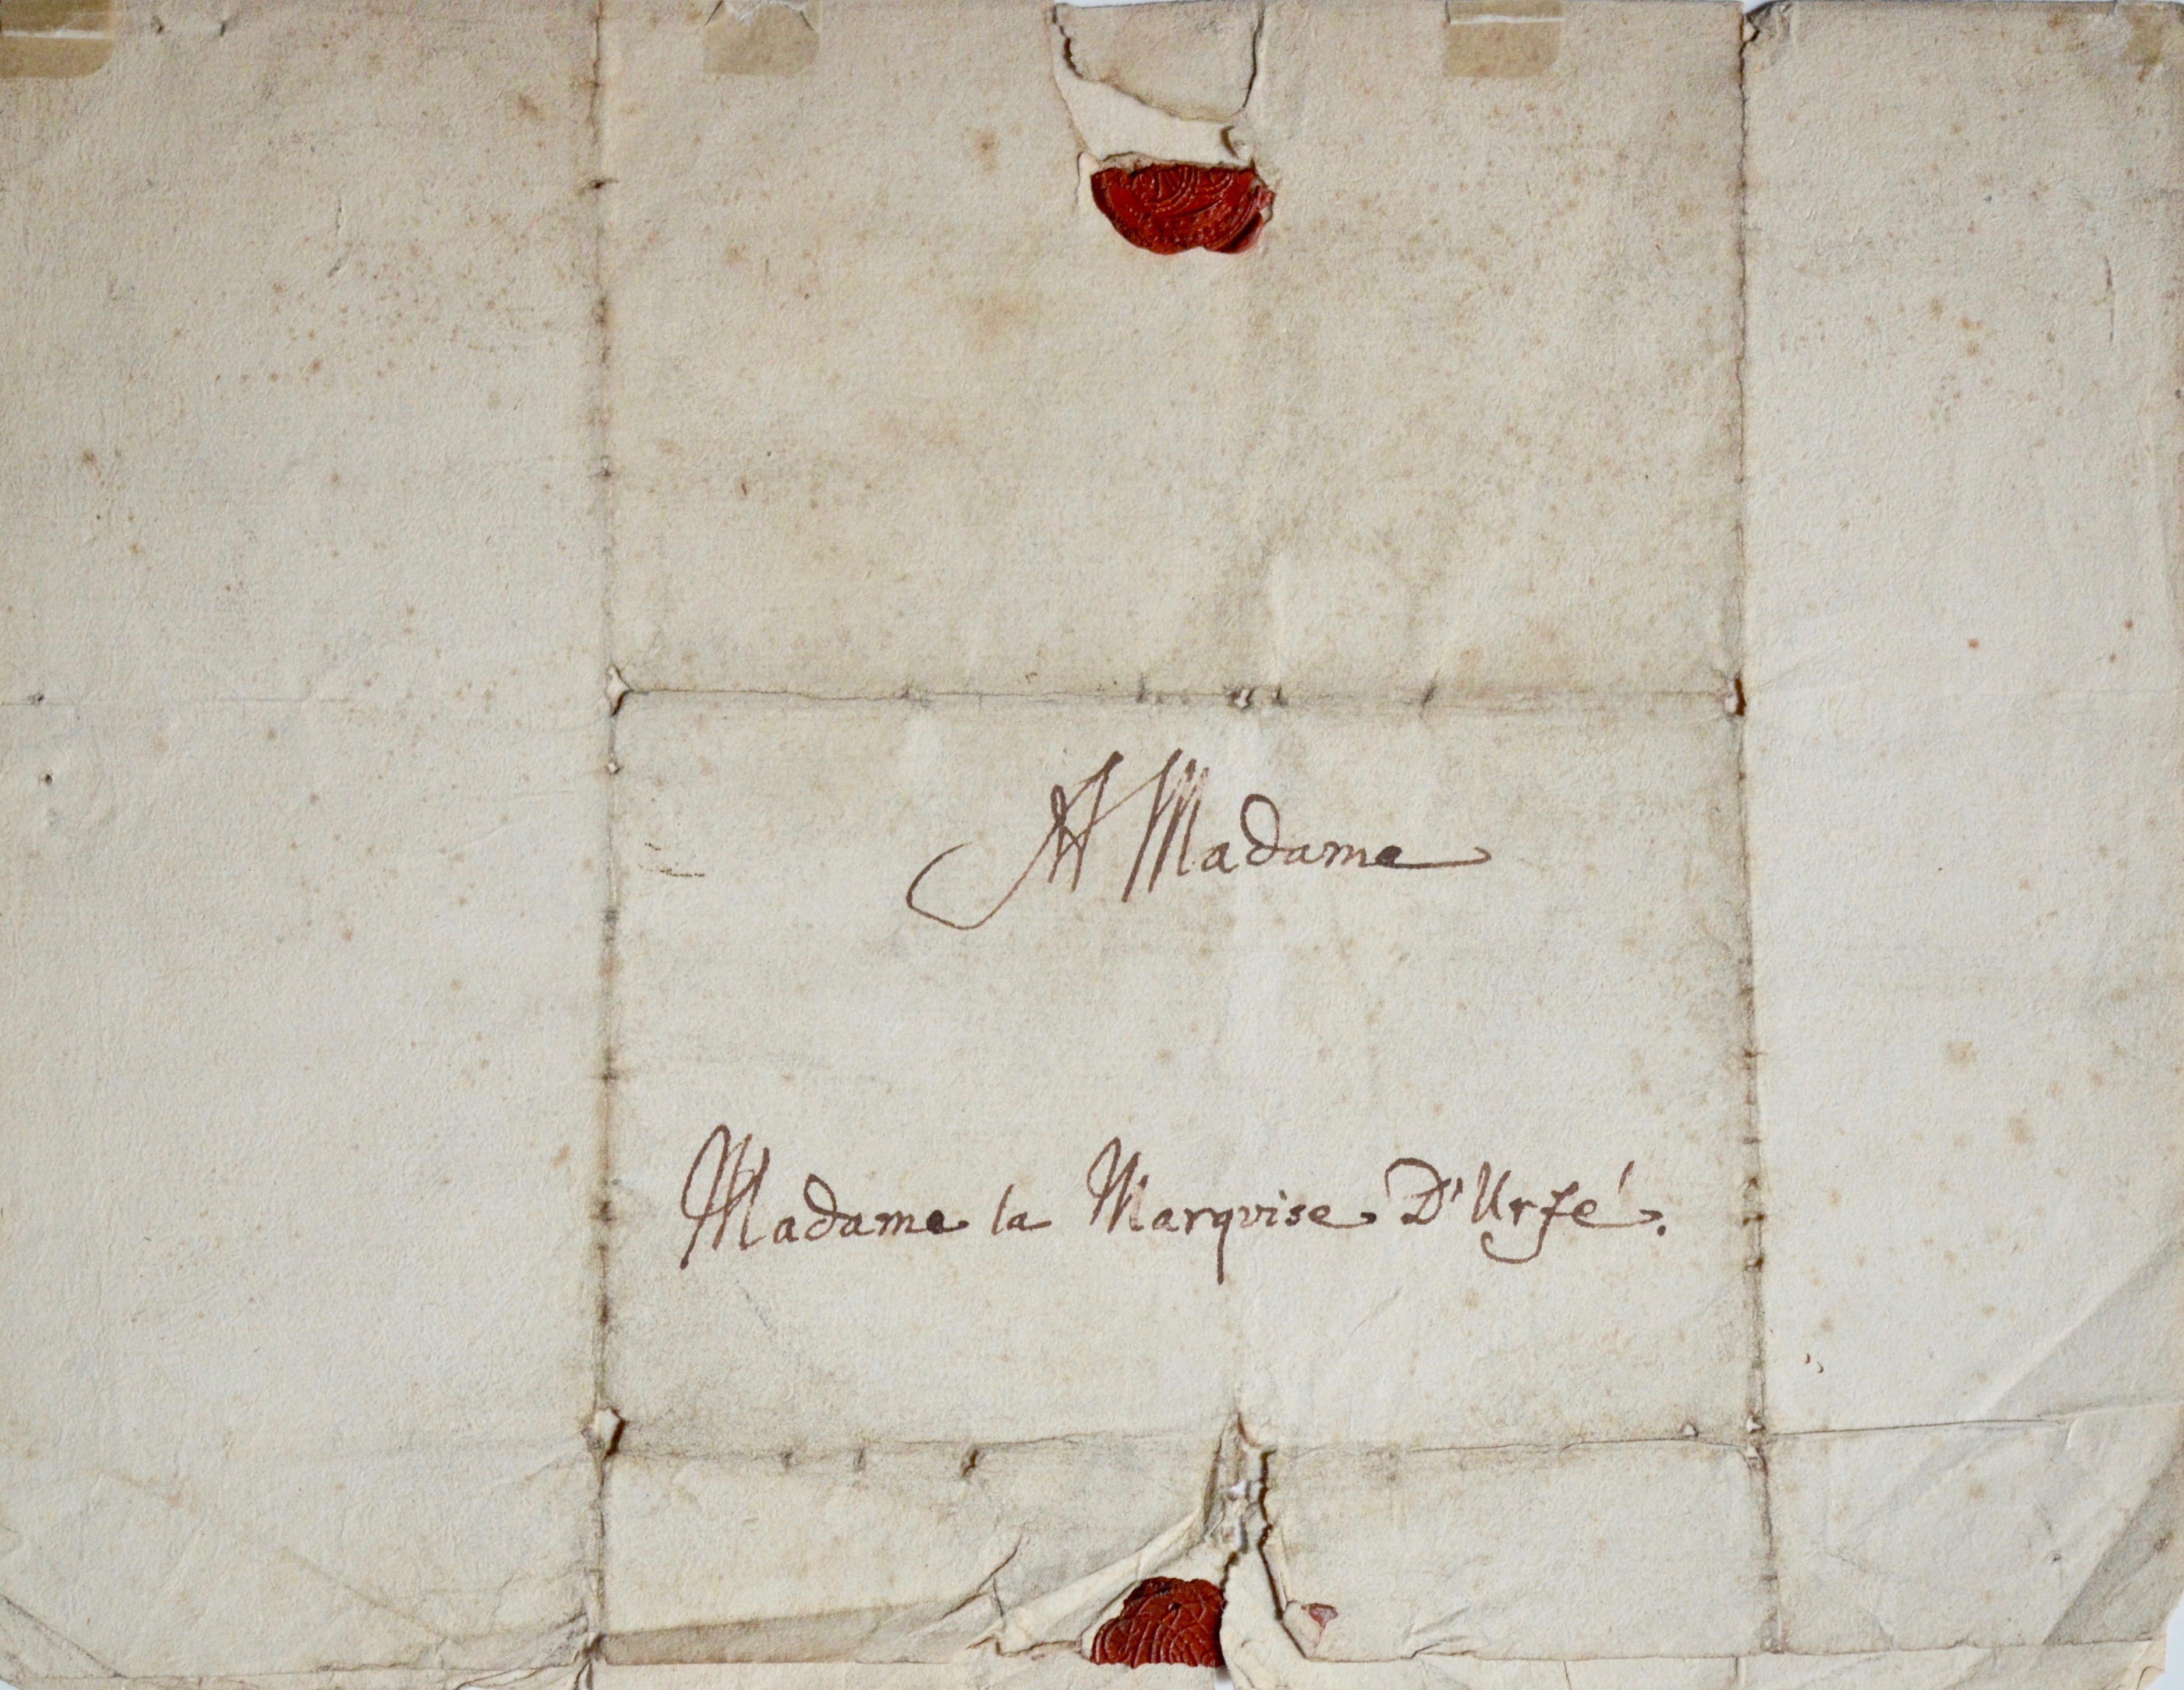 A Madame
Madame la Marqvise D'Urfé.